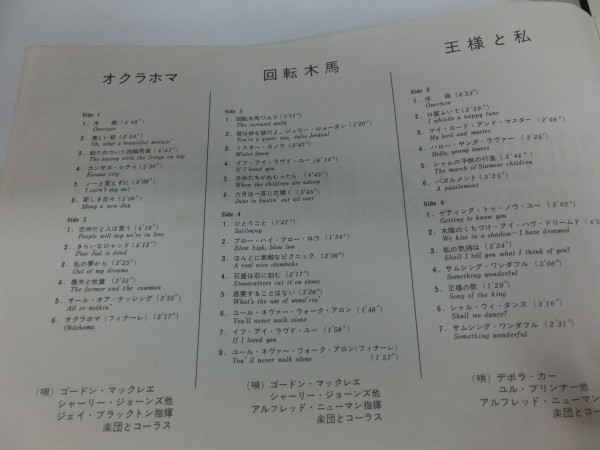 オクラホマ
Side 1
1. 序 曲 (4'48")
Overture
2. 楽しい朝 (2'30")
Oh, what a beautiful mornin'
3. 飾りのついた四輪馬車 (4'42")
The surrey with the fringe on top
4. カンサス・シティ (2'30")
Kansas city
5. ノーと言えずに (3'06")
I cain't say no!
6. 新しき日々 (3'08")
Many a new day
Side 2
1. 恋仲だと人は言う (4'18")
People will say we're in love
2. きらいなジャッド (4'12")
Poor Jud is dead
3. 私の夢から (2'25")
Out of my dreams
4. 農夫と牧童 (2'55")
The farmer and the cowman
5. オール・オア・ナッシング (2'55")
All or nothin'
6. オクラホマ (フィナーレ) (3'17")
Oklahoma
(唄) ゴードン・マックレエ
シャーリー・ジョーンズ他
ジェイ・ブラックトン指揮
楽団とコーラス
回転木馬
Side 3
1. 回転木馬ワルツ (2'17")
The carousel waltz
2. 君は妙な娘だよ、ジュリー・ジョーダン (1'20")
You're a queer one, Julie Jordan!
3. ミスター・スノウ (3'47")
Mister Snow
4. イフ・アイ・ラヴド・ユー (6'14")
If I loved you
5. 子供たちがねむったら (4'43")
When the children are asleep
6. 六月は一斉に花開く (3'45")
June is bustin' out all over
Side 4
1. ひとりごと (7'47")
Soliloquy
2. ブロー・ハイ・ブロー・ロウ (1'24")
Blow high, blow low
3. ほんとに素敵なピクニック (2'36")
A real nice clambake
4. 石屋は石に刻む (2'17")
Stonecutters cut it on stone
5. 思案することはない (3'26")
What's the use of wond'rin'
6. ユール・ネヴァー・ウォーク・アロン (1'48")
You'll never walk alone
7. イフ・アイ・ラヴド・ユー (1'58")
If I loved you
8. ユール・ネヴァー・ウォーク・アロン (フィナーレ)
You'll never walk alone (1'57")
(唄) ゴードン・マックレエ
シャーリー・ジョーンズ他
アルフレッド・ニューマン指揮
楽団とコーラス
王様と私
Side 5
1. 序 曲 (6'33")
Overture
2. 口笛ふいて (2'39")
I whistle a happy tune
3. マイ・ロード・アンド・マスター (2'08")
My lord and master
4. ハロー・ヤング・ラヴァー (3'25")
Hello, young lovers
5. シャムの子供の行進 (3'44")
The march of Siamese children
6. パズルメント (3'25")
A puzzlement
Side 6
1. ゲティング・トゥ・ノウ・ユー (3'02")
Getting to know you
2. 木陰のくちづけ〜アイ・ハヴ・ドリームド
We kiss in a shadow—I have dreamed
3. 私の気持は (3'24")
Shall I tell you what I think of you?
4. サムシング・ワンダフル (3'06")
Something wonderful
5. 王様の歌 (1'29")
Song of the king
6. シャル・ウィ・ダンス (3'16")
Shall we dance?
7. サムシング・ワンダフル (2'31")
Something wonderful
(唄) デボラ・カー
ユル・ブリンナー他
アルフレッド・ニューマン
楽団とコ